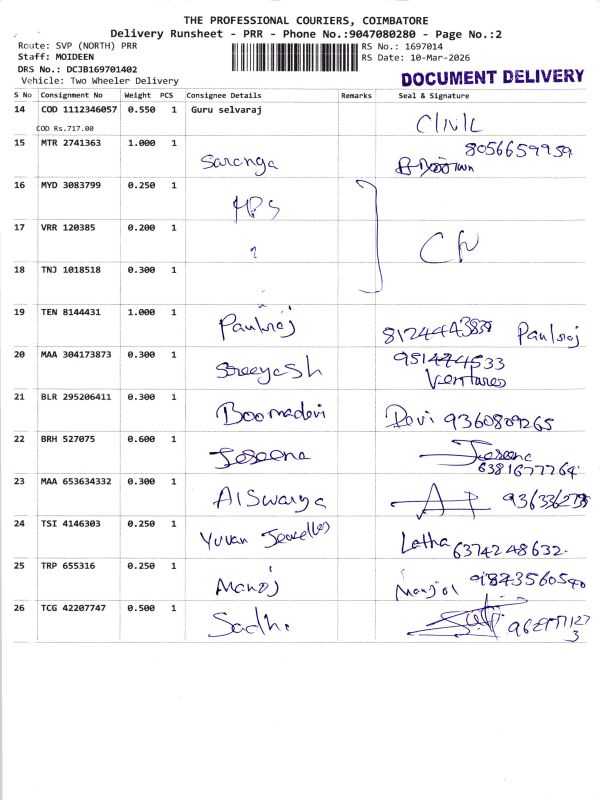 THE PROFESSIONAL COURIERS, COIMBATORE
Delivery Runsheet - PRR - Phone No.:9047080280 - Page No.:2
Route: SVP (NORTH) PRR
Staff: MOIDEEN
DRS No.: DCJB169701402
Vehicle: Two Wheeler Delivery
RS No.: 1697014
RS Date: 10-Mar-2026
DOCUMENT DELIVERY
S No Consignment No Weight PCS Consignee Details Remarks Seal & Signature
14 COD 1112346057 0.550 1 Guru selvaraj
COD Rs.717.00
15 MTR 2741363 1.000 1 Saranga 8056659959
16 MYD 3083799 0.250 1
17 VRR 120385 0.200 1
18 TNJ 1018518 0.300 1
19 TEN 8144431 1.000 1 Paulraj Paulraj
20 MAA 304173873 0.300 1 Sreeyash
Ventures
21 BLR 295206411 0.300 1 Boomadevi Devi 9360809265
22 BRH 527075 0.600 1 Jaseena Jaseena
6381677764
23 MAA 653634332 0.300 1 AISwarya
24 TSI 4146303 0.250 1 Yuvan Latha 6374248632.
25 TRP 655316 0.250 1 Manoj
26 TCG 42207747 0.500 1 Sadhi